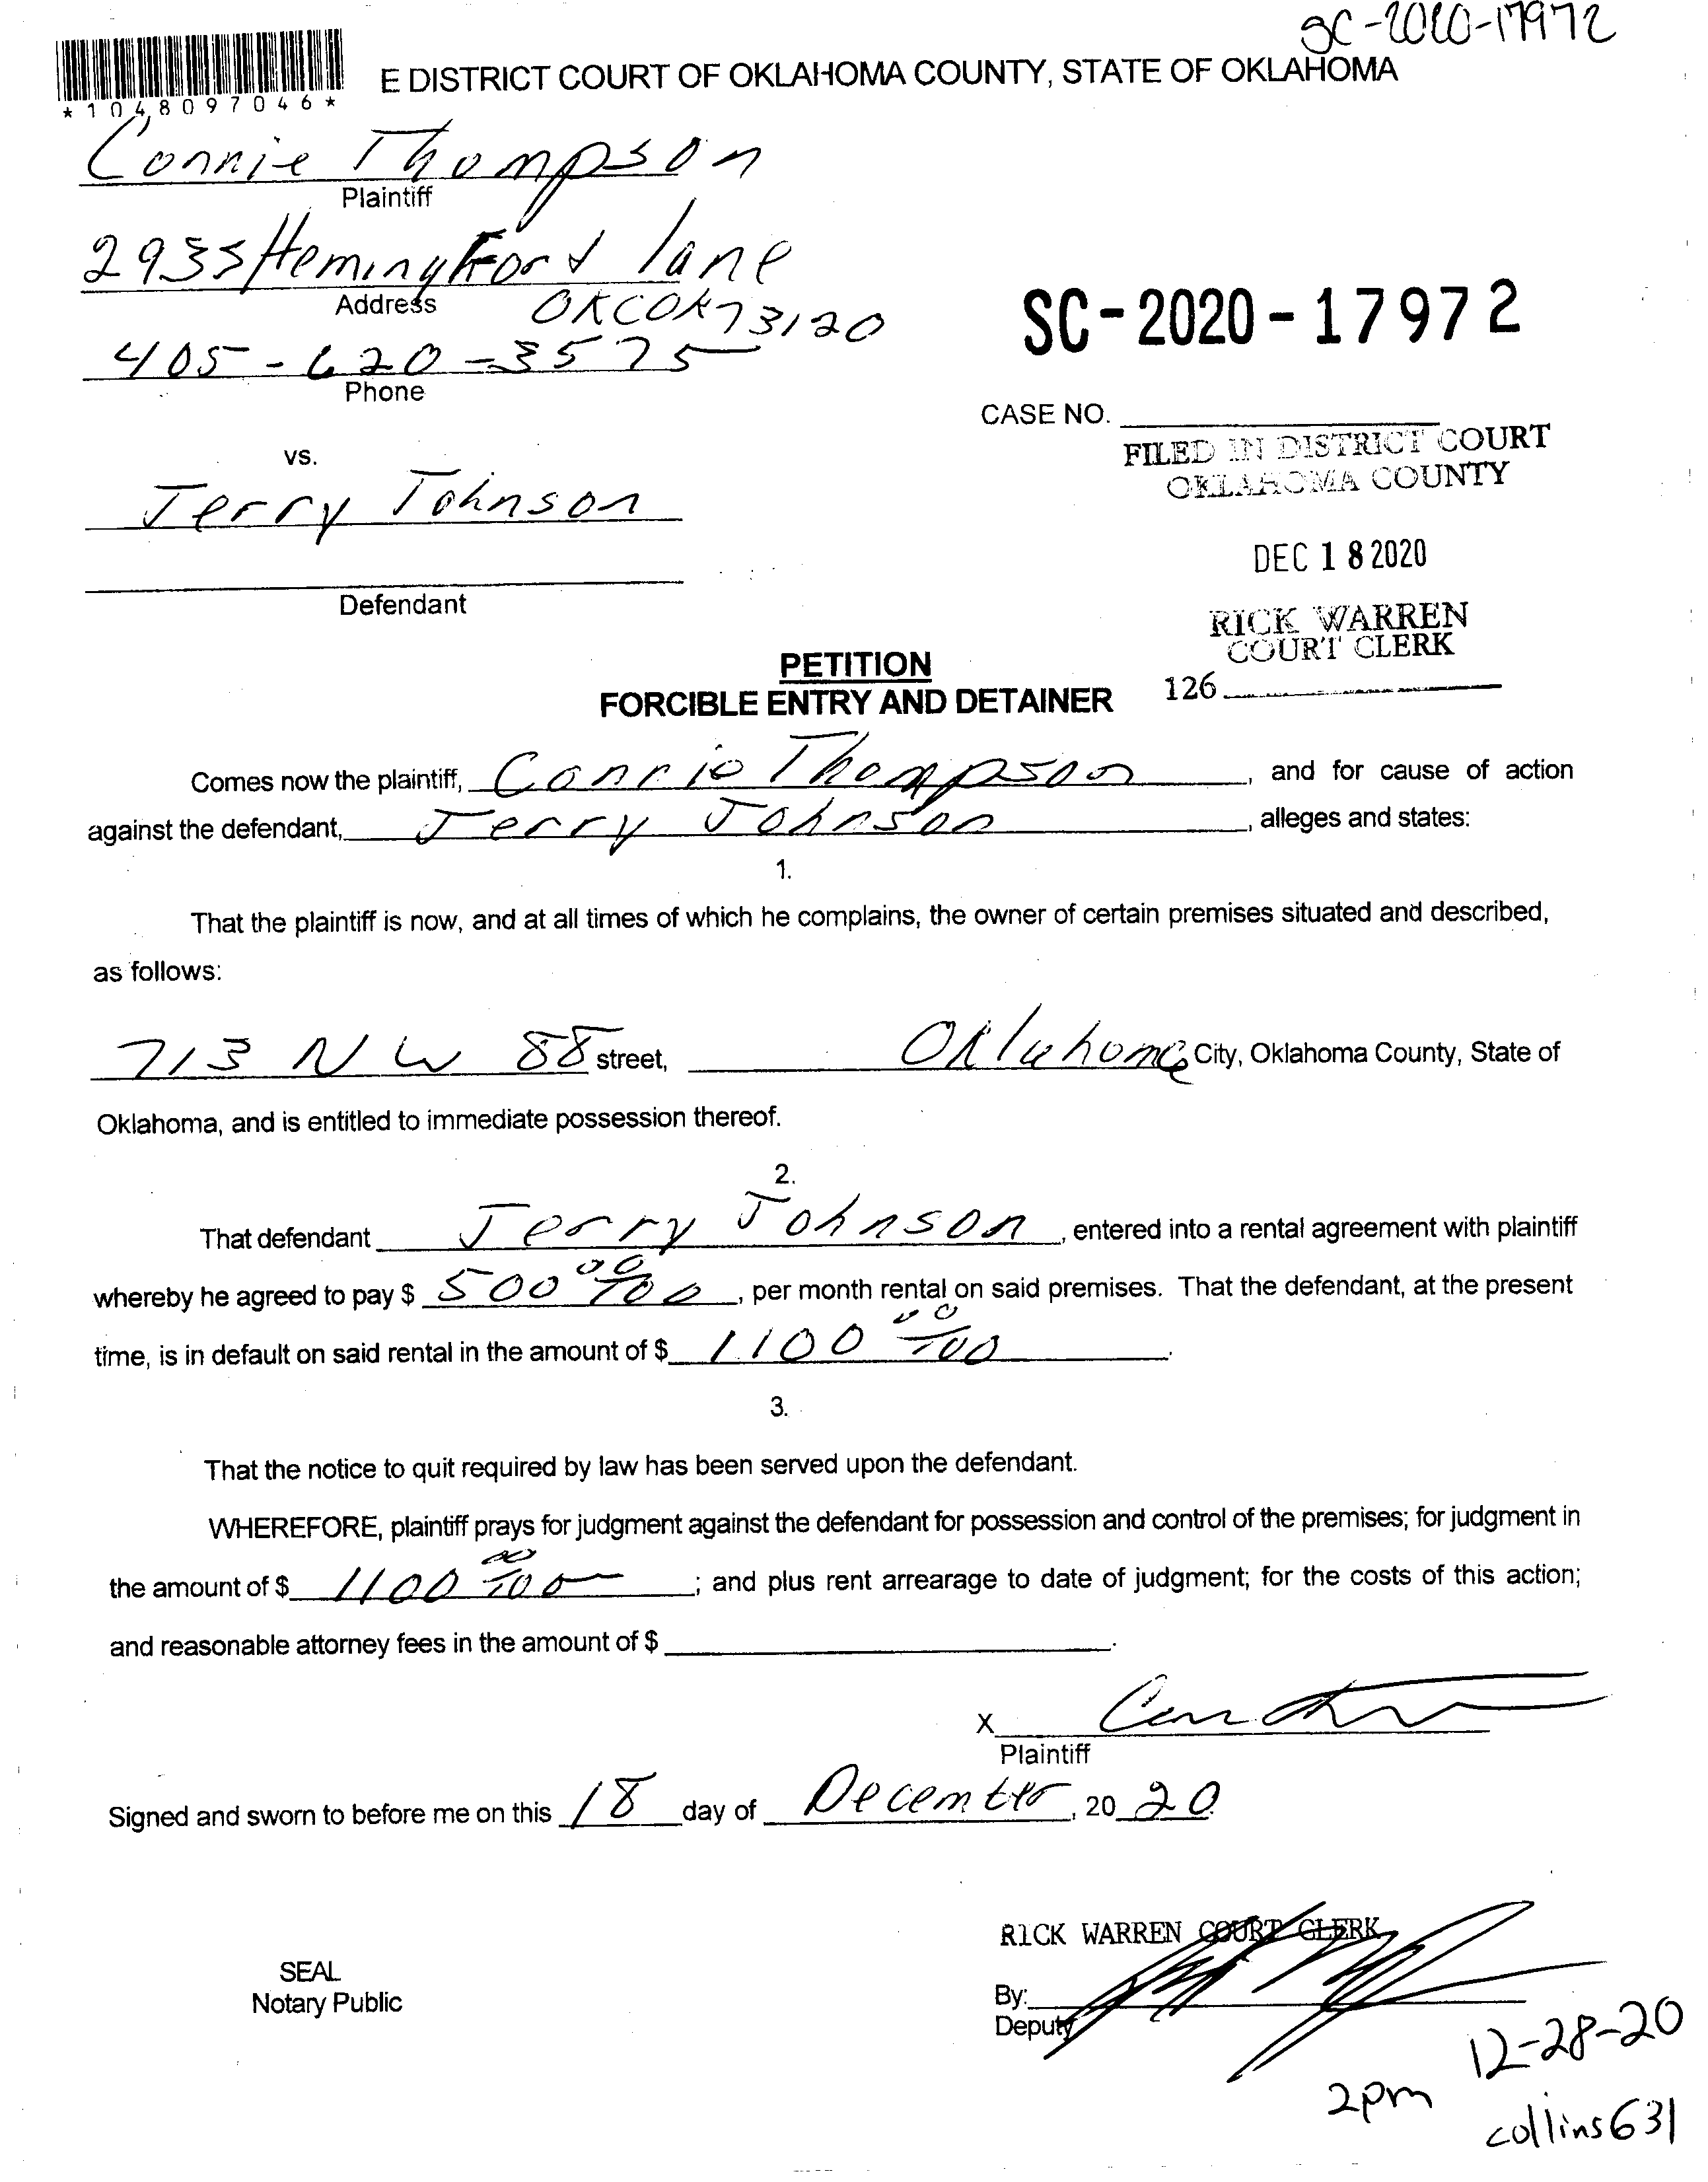 SC-2020-17972
E DISTRICT COURT OF OKLAHOMA COUNTY, STATE OF OKLAHOMA
*1048097046*
Connie Thompson
Plaintiff
2933 Hemingford lane
Address OKC OK 73120
405-620-3575
Phone
SC-2020-17972
CASE NO.
FILED IN DISTRICT COURT
OKLAHOMA COUNTY
vs.
Jerry Johnson
DEC 18 2020
Defendant
RICK WARREN
COURT CLERK
126
PETITION
FORCIBLE ENTRY AND DETAINER
Comes now the plaintiff, Connie Thompson, and for cause of action
against the defendant, Jerry Johnson, alleges and states:
1.
That the plaintiff is now, and at all times of which he complains, the owner of certain premises situated and described,
as follows:
713 NW 88 street, Oklahoma City, Oklahoma County, State of
Oklahoma, and is entitled to immediate possession thereof.
2.
That defendant Jerry Johnson, entered into a rental agreement with plaintiff
whereby he agreed to pay $ 500 00/100, per month rental on said premises. That the defendant, at the present
time, is in default on said rental in the amount of $ 1100 00/100.
3.
That the notice to quit required by law has been served upon the defendant.
WHEREFORE, plaintiff prays for judgment against the defendant for possession and control of the premises; for judgment in
the amount of $ 1100 00/100; and plus rent arrearage to date of judgment; for the costs of this action;
and reasonable attorney fees in the amount of $ .
X
Plaintiff
Signed and sworn to before me on this 18 day of December, 20 20
RICK WARREN COURT CLERK
SEAL
Notary Public
By:
Deputy
12-28-20
2pm
collins 631